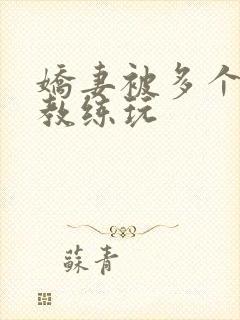 嬌妻被多个
教练玩
蘇青